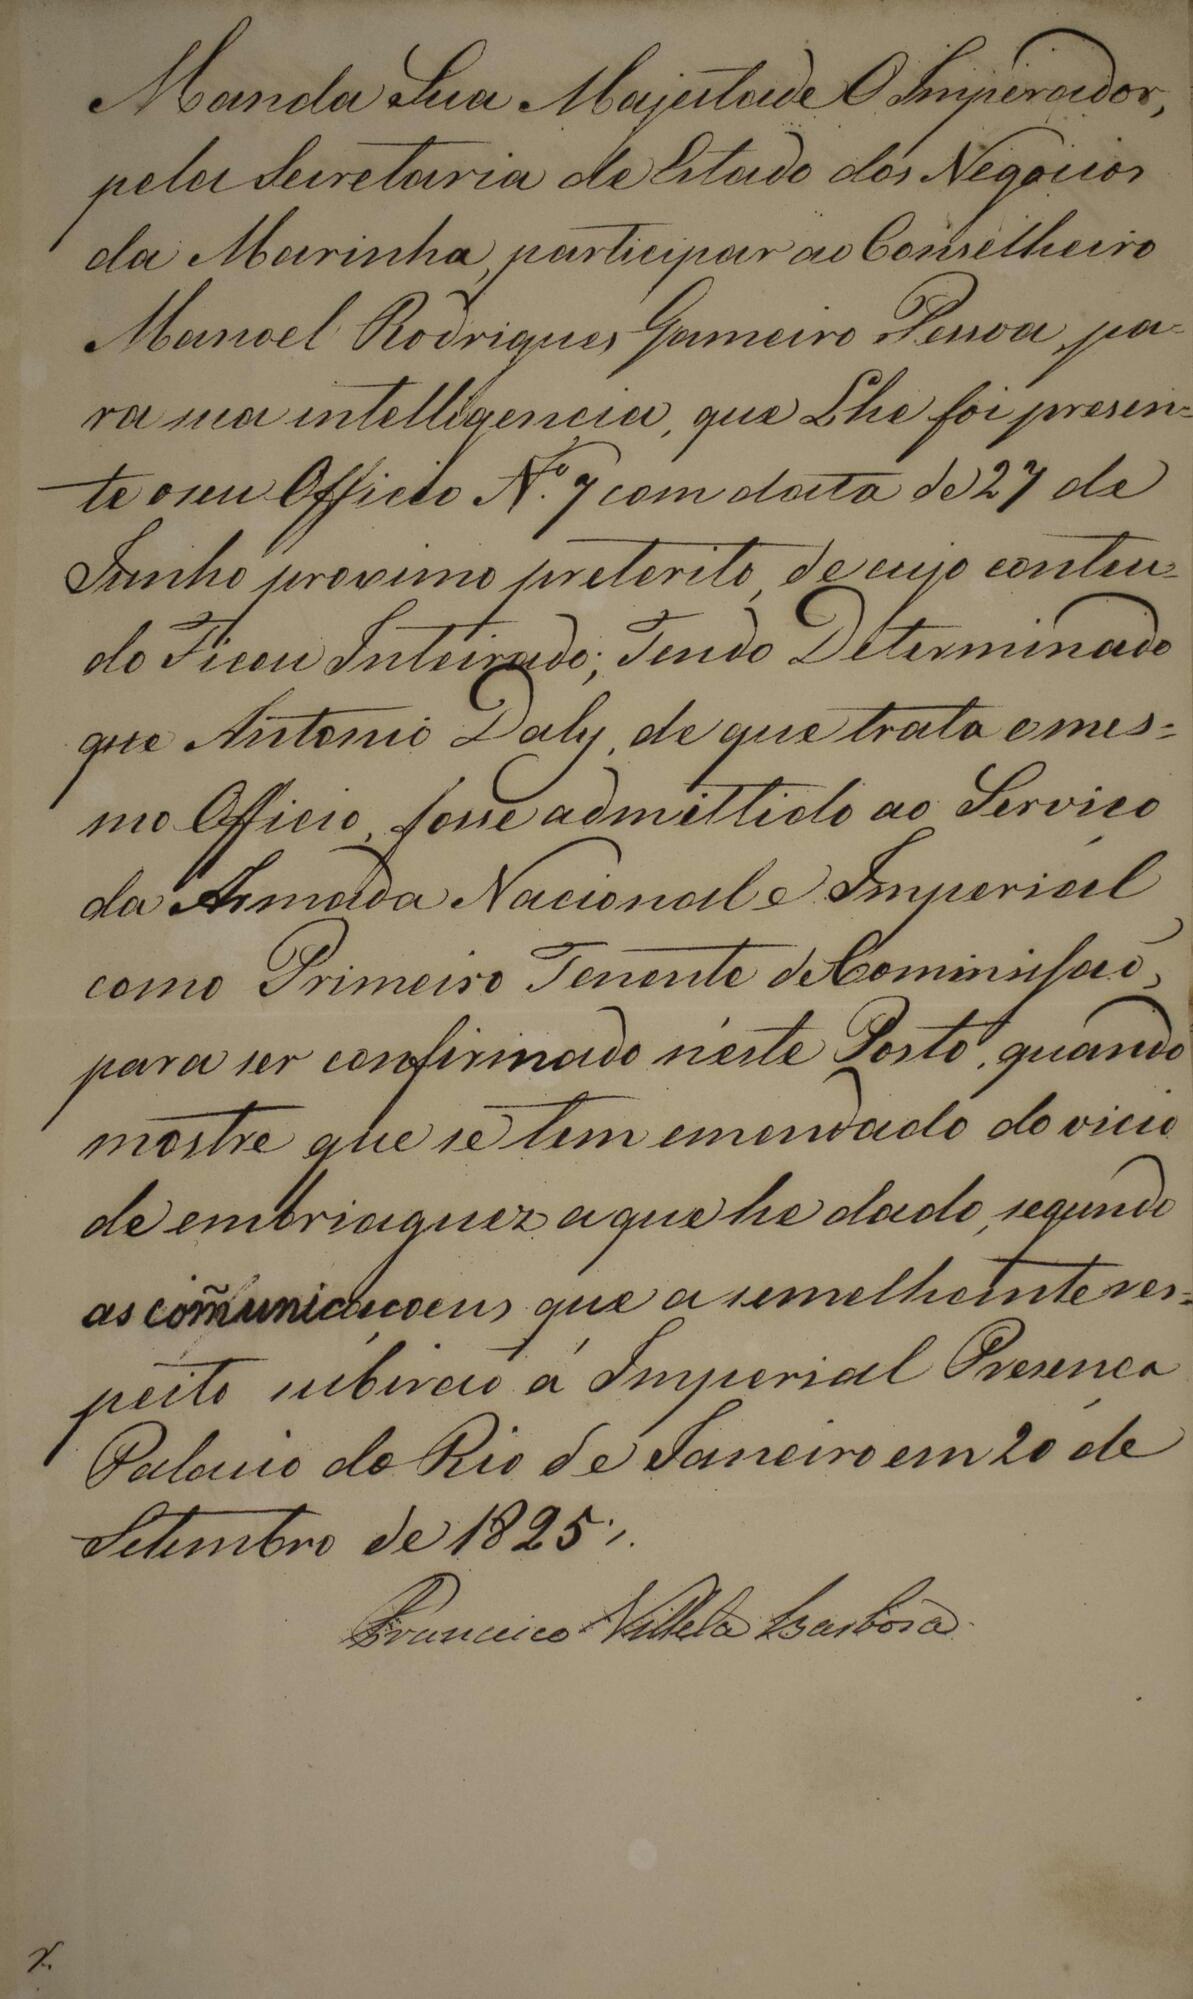 Manda Sua Majestade O Imperador,
pela Secretaria de Estado dos Negocios
da Marinha, participar ao Conselheiro
Manoel Rodrigues Gameiro Pessoa, pa-
ra sua intelligencia, que Lhe foi presen=
te o seu Officio N.º 7 com data de 27 de
Junho proximo preterito, de cujo conteu-
do Ficou Inteirado; Tendo Determinado
que Antonio Daly, de que trata o mes=
mo Officio, fosse admittido ao Serviço
da Armada Nacional e Imperial
como Primeiro Tenente de Commissaõ,
para ser confirmado n'este Posto, quando
mostre que se tem emendado do vicio
de embriaguez a que he dado, segundo
as com̃unicaçoens que a semelhante res=
peito subiraõ á Imperial Presença
Palacio do Rio de Janeiro em 20 de
Setembro de 1825;.
Francisco Villela Barbosa